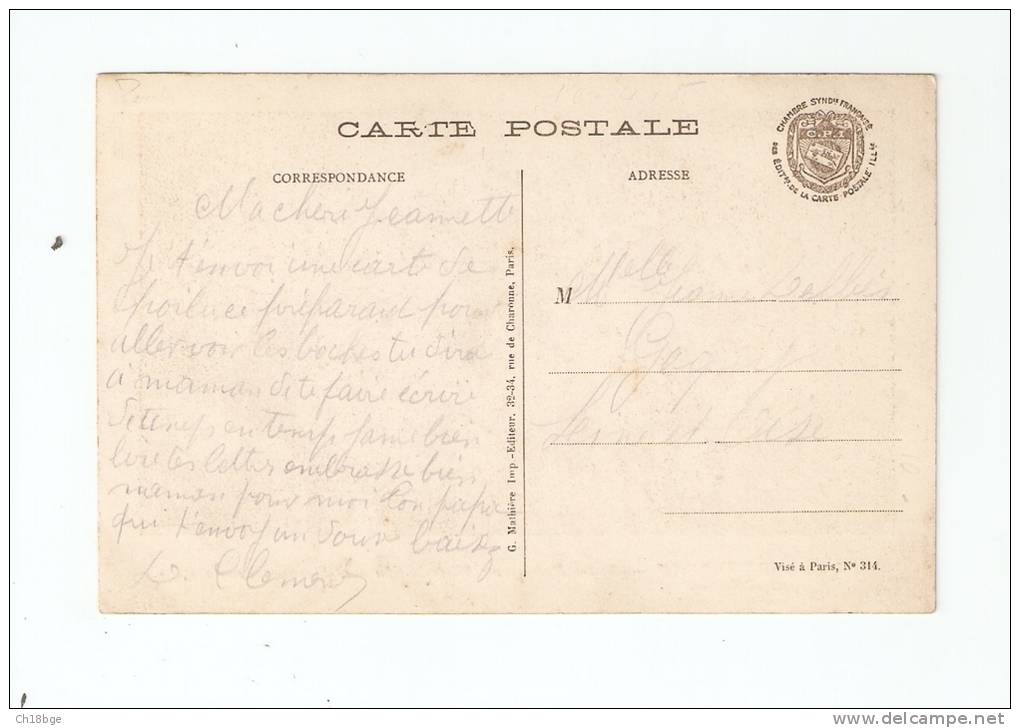 CARTE POSTALE
CHAMBRE SYND<sup>le</sup> FRANÇAISE
DES ÉDIT<sup>rs</sup> DE LA CARTE POSTALE ILL<sup>ée</sup>
C.P.I
CORRESPONDANCE
Ma cheri Jeannette
Je t'envoi une carte de
poilu ce préparand pour
aller voir les boches tu dira
a maman de te faire écrire
de temp en temp jaime bien
lire tes letter embrasse bien
maman pour moi ton papa
qui t'envoy un doux baisez
L. Clement
G. Mathière Imp.-Editeur, 32-34, rue de Charonne, Paris.
ADRESSE
M elle
Gagny
Seine et Oise
Visé à Paris, N° 314.
Ch18bge
www.delcampe.net